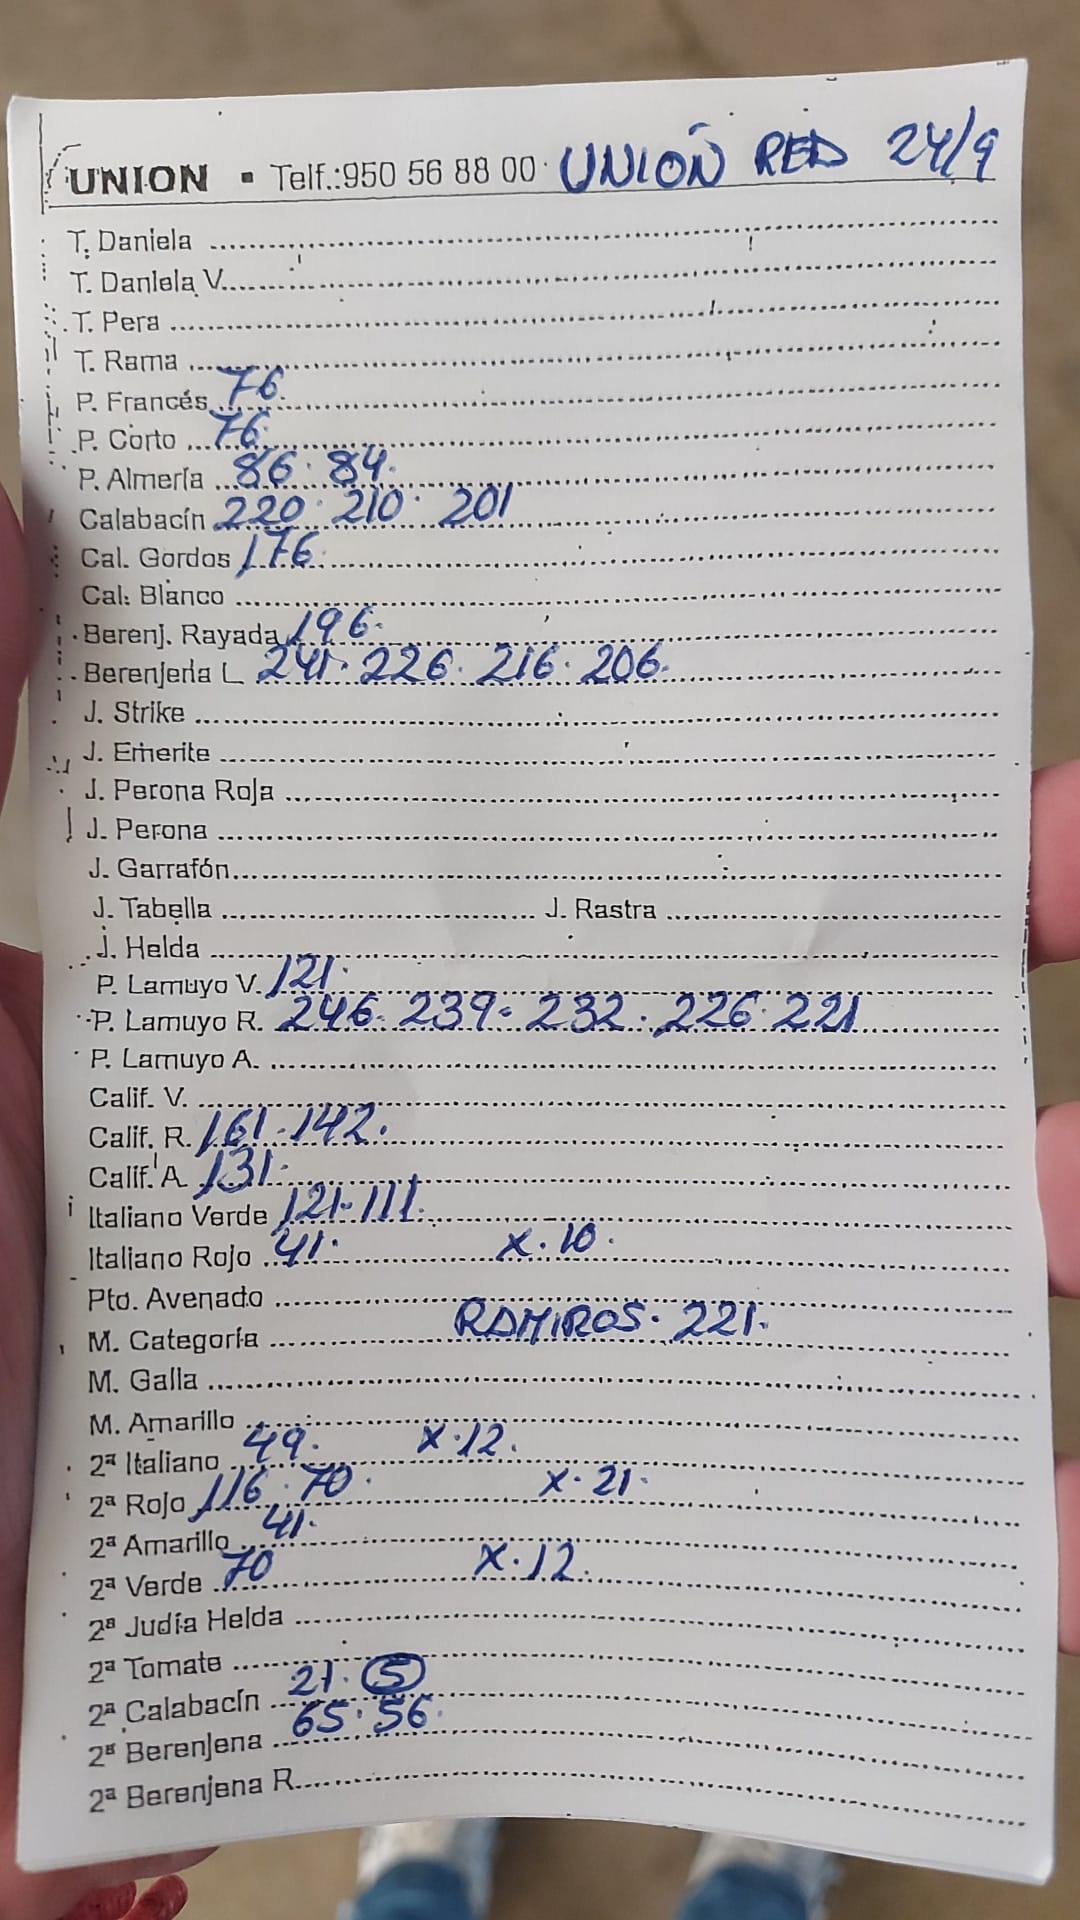 UNION ▪ Telf.:950 56 88 00 UNIÓN RED 24/9
T. Daniela
T. Daniela V.
T. Pera
T. Rama
P. Francés 76.
P. Corto 76.
P. Almería 86. 84.
Calabacín 220. 210. 201
Cal. Gordos 176.
Cal. Blanco
Berenj. Rayada 196.
Berenjena L 241. 226. 216. 206.
J. Strike
J. Emerite
J. Perona Roja
J. Perona
J. Garrafón
J. Tabella J. Rastra
J. Helda
P. Lamuyo V. 121.
P. Lamuyo R. 246. 239. 232. 226. 221
P. Lamuyo A.
Calif. V.
Calif. R. 161. 142.
Calif. A 131.
Italiano Verde 121. 111.
Italiano Rojo 41. X. 10.
Pto. Avenado
M. Categoría RAMIROS. 221.
M. Galia
M. Amarillo
2ª Italiano 49. X. 12.
2ª Rojo 116. 70. X. 21.
2ª Amarillo 41.
2ª Verde 70 X. 12.
2ª Judía Helda
2ª Tomate
2ª Calabacín 21. 5
2ª Berenjena 65. 56.
2ª Berenjena R.